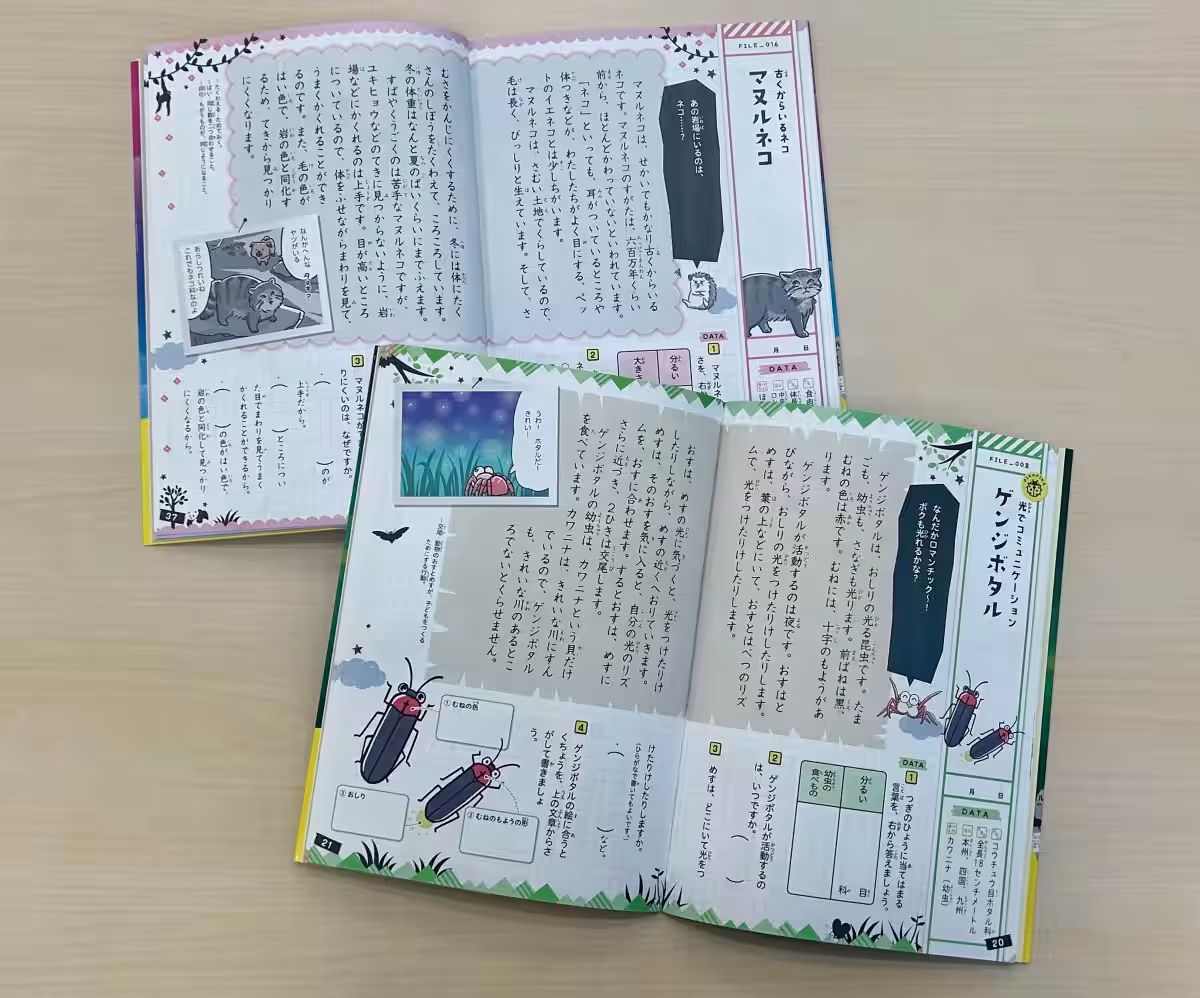 FILE_016
古くからいるネコ
マヌルネコ
月 日
DATA
あの岩場にいるのは、
ネコ……?
マヌルネコは、せかいでもかなり古くからいる
ネコです。マヌルネコのすがたは、六百万年くらい
前から、ほとんどかわっていないといわれています。
「ネコ」といっても、耳がついているところや
体つきなどが、わたしたちがよく目にする、ペッ
トのイエネコとは少しちがいます。
マヌルネコは、さむい土地でくらしているので、
毛は長く、びっしりと生えています。そして、さ
むさをかんじにくくするために、冬には体にたく
さんのしぼうをたくわえて、ころころしています。
冬の体重はなんと夏のばいくらいにまでふえます。
すばやくうごくのは苦手なマヌルネコですが、
ユキヒョウなどのてきに見つからないように、岩
場などにかくれるのは上手です。目が高いところ
についているので、体をふせながらまわりを見て、
うまくかくれることができ
るのです。また、毛の色が
はい色で、岩の色と同化す
るため、てきから見つかり
にくくなります。
なんかへんな
ヤツがいる
あらしつれいね
これでもネコ科なのよ
DATA
1
分るい
大きさ
2
3
マヌルネコが
りにくいのは、なぜですか。
・( )のが
上手だから。
・( )ところについ
た目でまわりを見てうまく
かくれることができるから。
・( )の色がはい色で、
岩の色と同化して見つかり
にくくなるから。
37
FILE_008
光でコミュニケーション
ゲンジボタル
月 日
DATA
コウチュウ目ホタル科
全長1.8センチメートル
本州、四国、九州
カワニナ(幼虫)
20
なんだかロマンチック〜!
ボクも光れるかな?
ゲンジボタルは、おしりの光る昆虫です。たま
ごも、幼虫も、さなぎも光ります。前ばねは黒、
むねの色は赤です。むねには、十字のもようがあ
ります。
ゲンジボタルが活動するのは夜です。おすはと
びながら、おしりの光をつけたりけしたりします。
めすは、葉の上などにいて、おすとはべつのリズ
ムで、光をつけたりけしたりします。
おすは、めすの光に気づくと、光をつけたりけ
したりしながら、めすの近くへおりていきます。
めすは、そのおすを気に入ると、自分の光のリズ
ムを、おすに合わせます。するとおすは、めすに
さらに近づき、2ひきは交尾します。
ゲンジボタルの幼虫は、カワニナという貝だけ
を食べています。カワニナは、きれいな川にすん
でいるので、ゲンジボタル
も、きれいな川のあるとこ
ろでないとくらせません。
うわー ホタルだー
きれいー
交尾…動物のおすとめすが、子どもをつくる
ためにする行動。
DATA
1
つぎのひょうに当てはまる
言葉を、右から答えましょう。
分るい
目
科
幼虫の
食べもの
2
ゲンジボタルが活動するの
は、いつですか。
( )
3
めすは、どこにいて光をつ
けたりけしたりしますか。
(ひらがなで書いてもよいです。)
・( )など。
4
ゲンジボタルの絵に合うと
くちょうを、上の文章からさ
がして書きましょ
う。
①むねの色
②むねのもようの形
③おしり
21